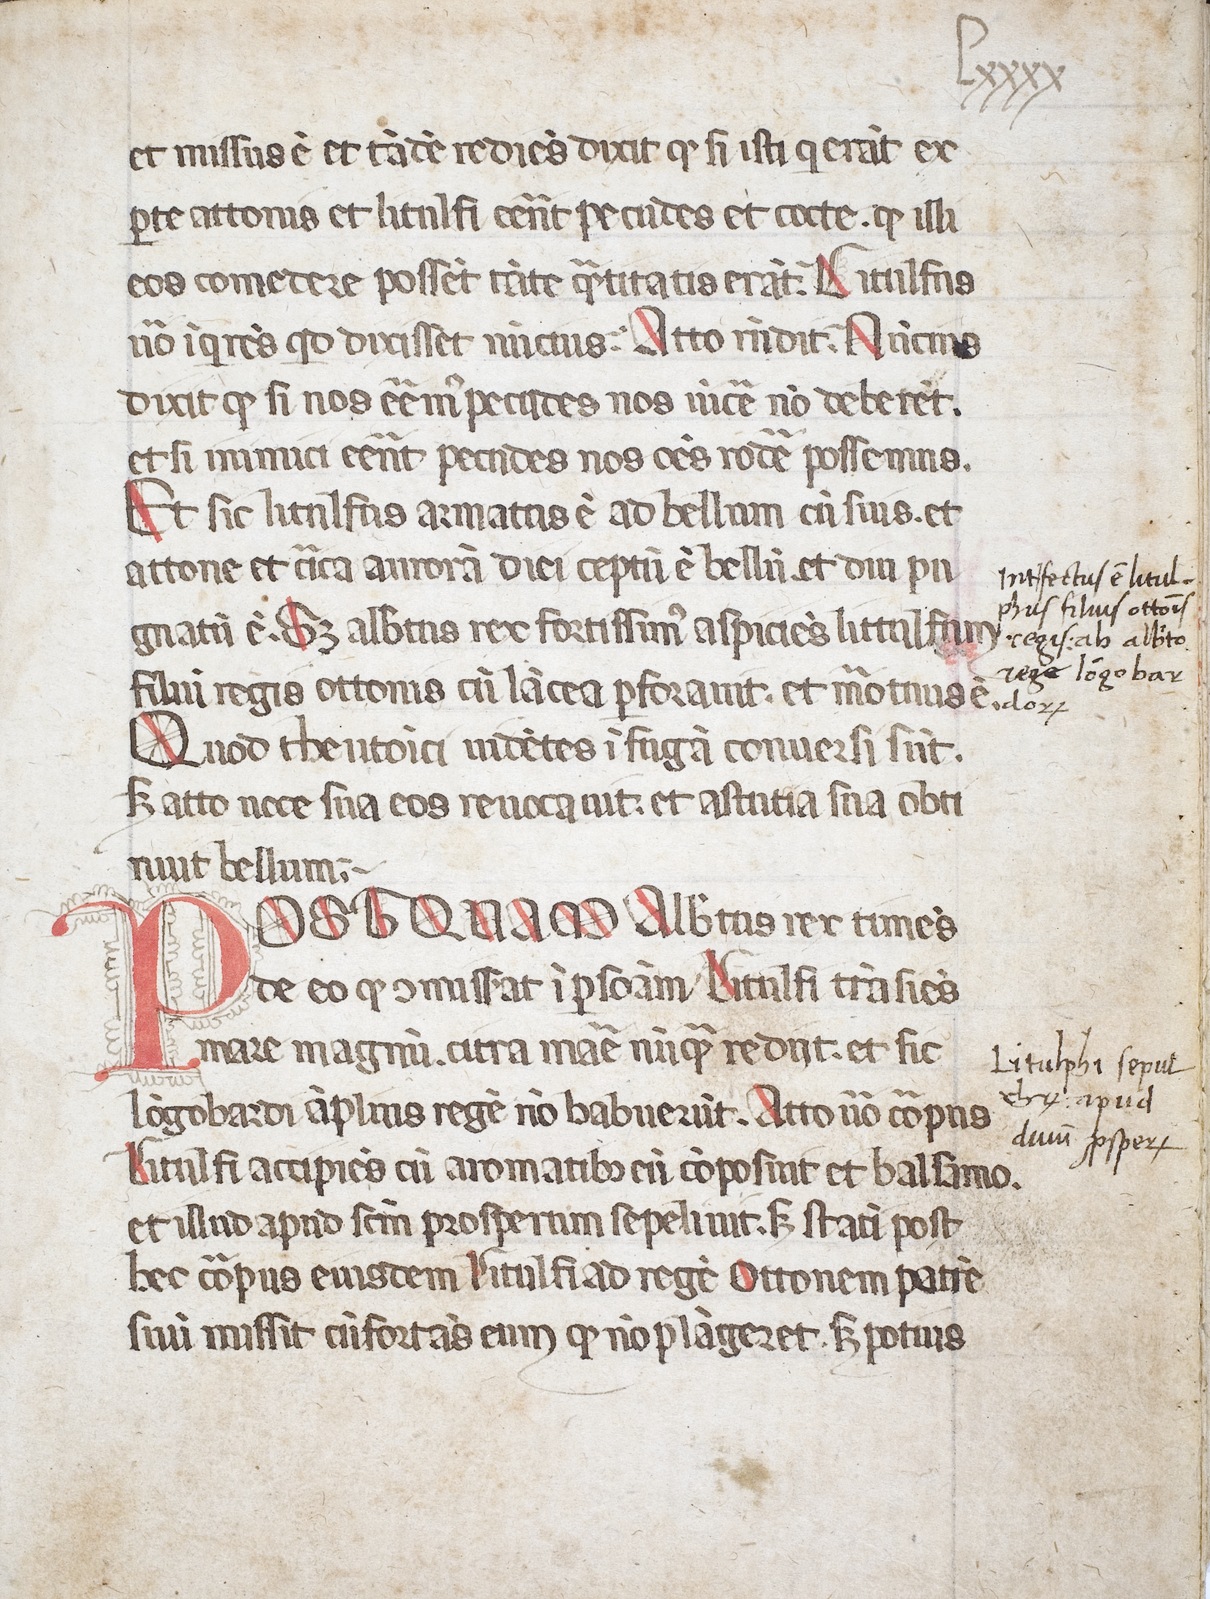 Lxxxx
et missus ē et tādē rediēs dixit qꝫ si isti q erāt ex
ꝑte attonis et litulfi eēn̄t pecudes et cocte . qꝫ illi
eos comedere possēt tāte q̄titatis erāt. Litulfus
ū̄o īq̇rēs qd dixisset nūcius. Atto rn̄dit. Nūcius
dixit qꝫ si nos eē̄m᷒ pecudes nos uīcē nō deberēt.
et si inimici eēn̄t pecudes nos oēs rodē̄ possemus.
Et sic litulfus armatus ē ad bellum cū suis. et
attone et cīca aurorā diei ceptū ē bellū. et diu pu
gnatū ē. Sꝫ alb̄tus rex fortissim᷒ aspiciēs littulfum
filiū regis ottonis cū lācea ꝑforauit. et m̄otuus ē.
Quod theutoīci uidētes ī fugā conuersi sūt.
sꝫ atto uoce sua eos reuocauit. et astutia sua obti
nuit bellum.
POSTQUAM Alb̄tus rex timēs
de eo qꝫ ꝯmisserat ī ꝑsōam Litulfi trāsiēs
mare magnū. citra maē nūq̄ redijt. et sic
lōgobardi āplius regē nō habuerūt. Atto ū̄o cōrpus
Litulfi accipiēs cū aromatibꝫ eū cōposuit et balsamo.
et illud apud scm̄ prosperum sepeliuit. sꝫ statī post
hec cōrpus eiusdem Litulfi ad regē Ottonem patrē
suū missit cūfortās eum qꝫ nō plāgeret. sꝫ potius
Int̄fectus ē litul-
phus filius ottoīs
regis. ab alb̄to
rege lōgobar
doꝝ
Litulphi sepul
chꝝ apud
diuū ꝓsperꝝ